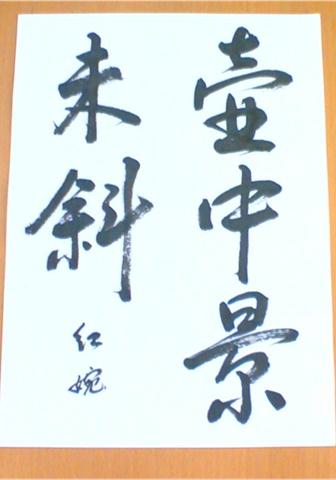 壺中景
未斜
紅婉